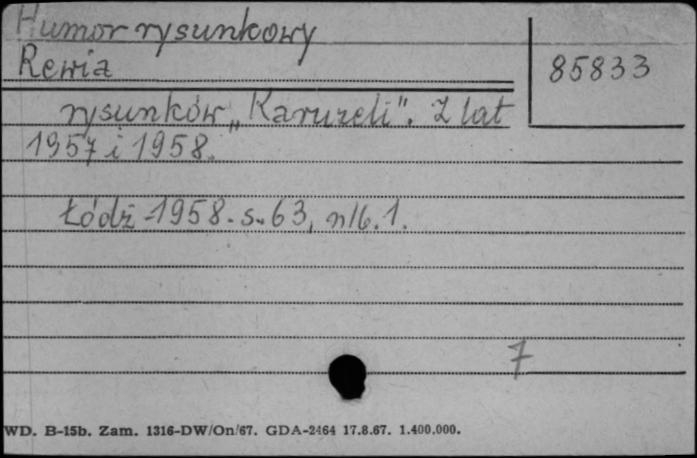 Humor rysunkowy
Rewia
85833
rysunków „Karuzeli". Z lat
1957 i 1958.
Łódź 1958. s. 63, nlb. 1.
7
WD. B-15b. Zam. 1316-DW/On/67. GDA-2464 17.8.67. 1.400.000.